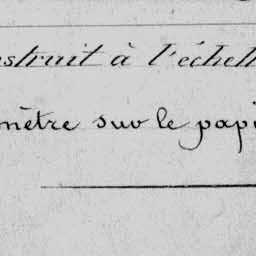 nstruit à l'échell
mètre sur le papi